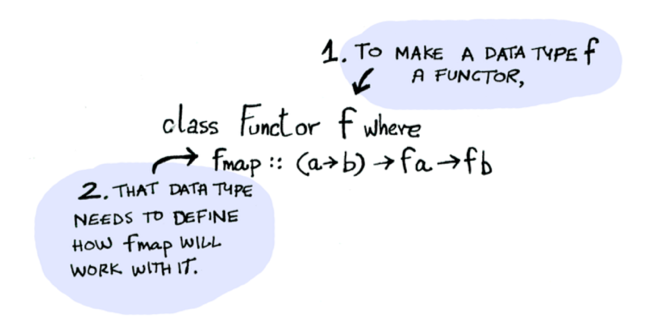 1. TO MAKE A DATA TYPE f
A FUNCTOR,
class Functor f where
fmap :: (a→b) → fa → fb
2. THAT DATA TYPE
NEEDS TO DEFINE
HOW fmap WILL
WORK WITH IT.